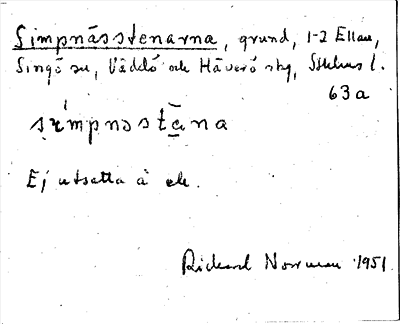 Simpnässtenarna, grund, 1-2 Ellan,
Singö sn, Väddö och Häverö skg, Sthlms l.
63 a
Ej utsatta å ek.
Rickard Norrman 1951